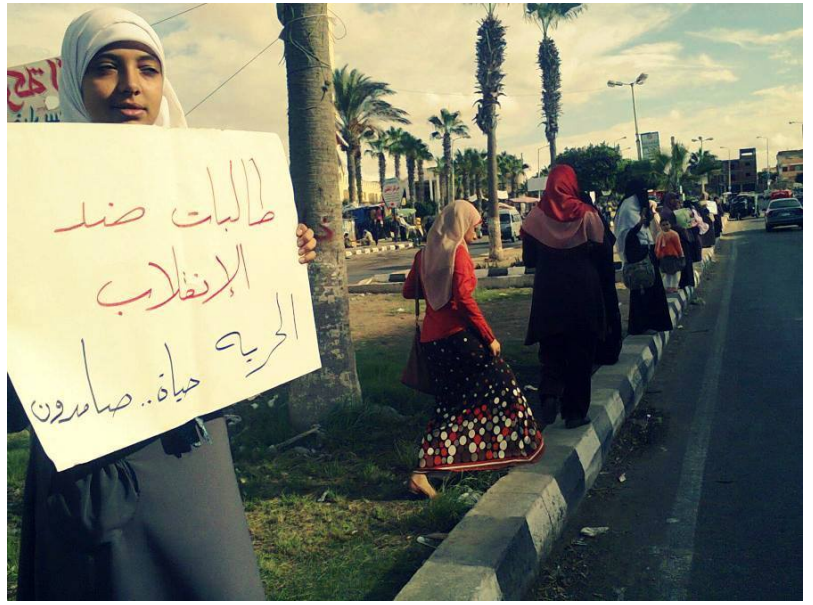 طالبات ضد
الإنقلاب
الحريه حياة.. صامدون